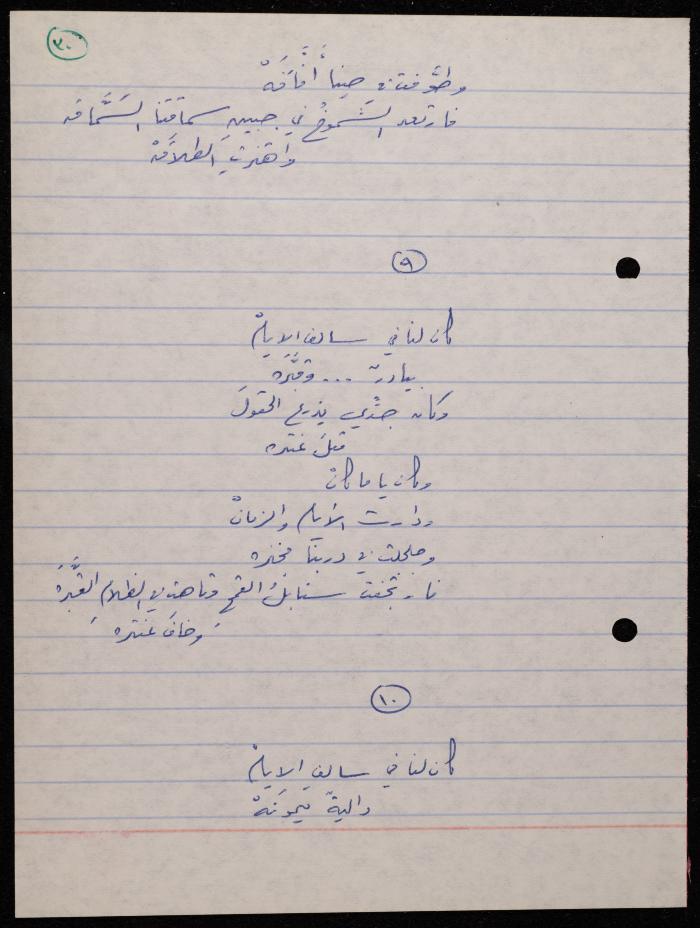 ٣٠
وطوَّفت في حينا أفَّاقَهْ
فارتعد الشموخُ في جبين سماقتنا السَّمَّاقه
واهتزت الطلاقَهْ
٩
كان لنا في سالف الأيامْ
بيادرٌ ... وقُبَّره
وكان جدّي يذرع الحقولَ
مثل عنتره
وكان يا ما كانْ
ودارت الأيام والزمانْ
وجلجلت في دربنا مجنزره
فارتجفت سنابلُ القمح وتاهت في الظلام القبَّرَهْ
وخافَ عنتره
١٠
كان لنا في سالف الأيامْ
داليةٌ ميمونَهْ